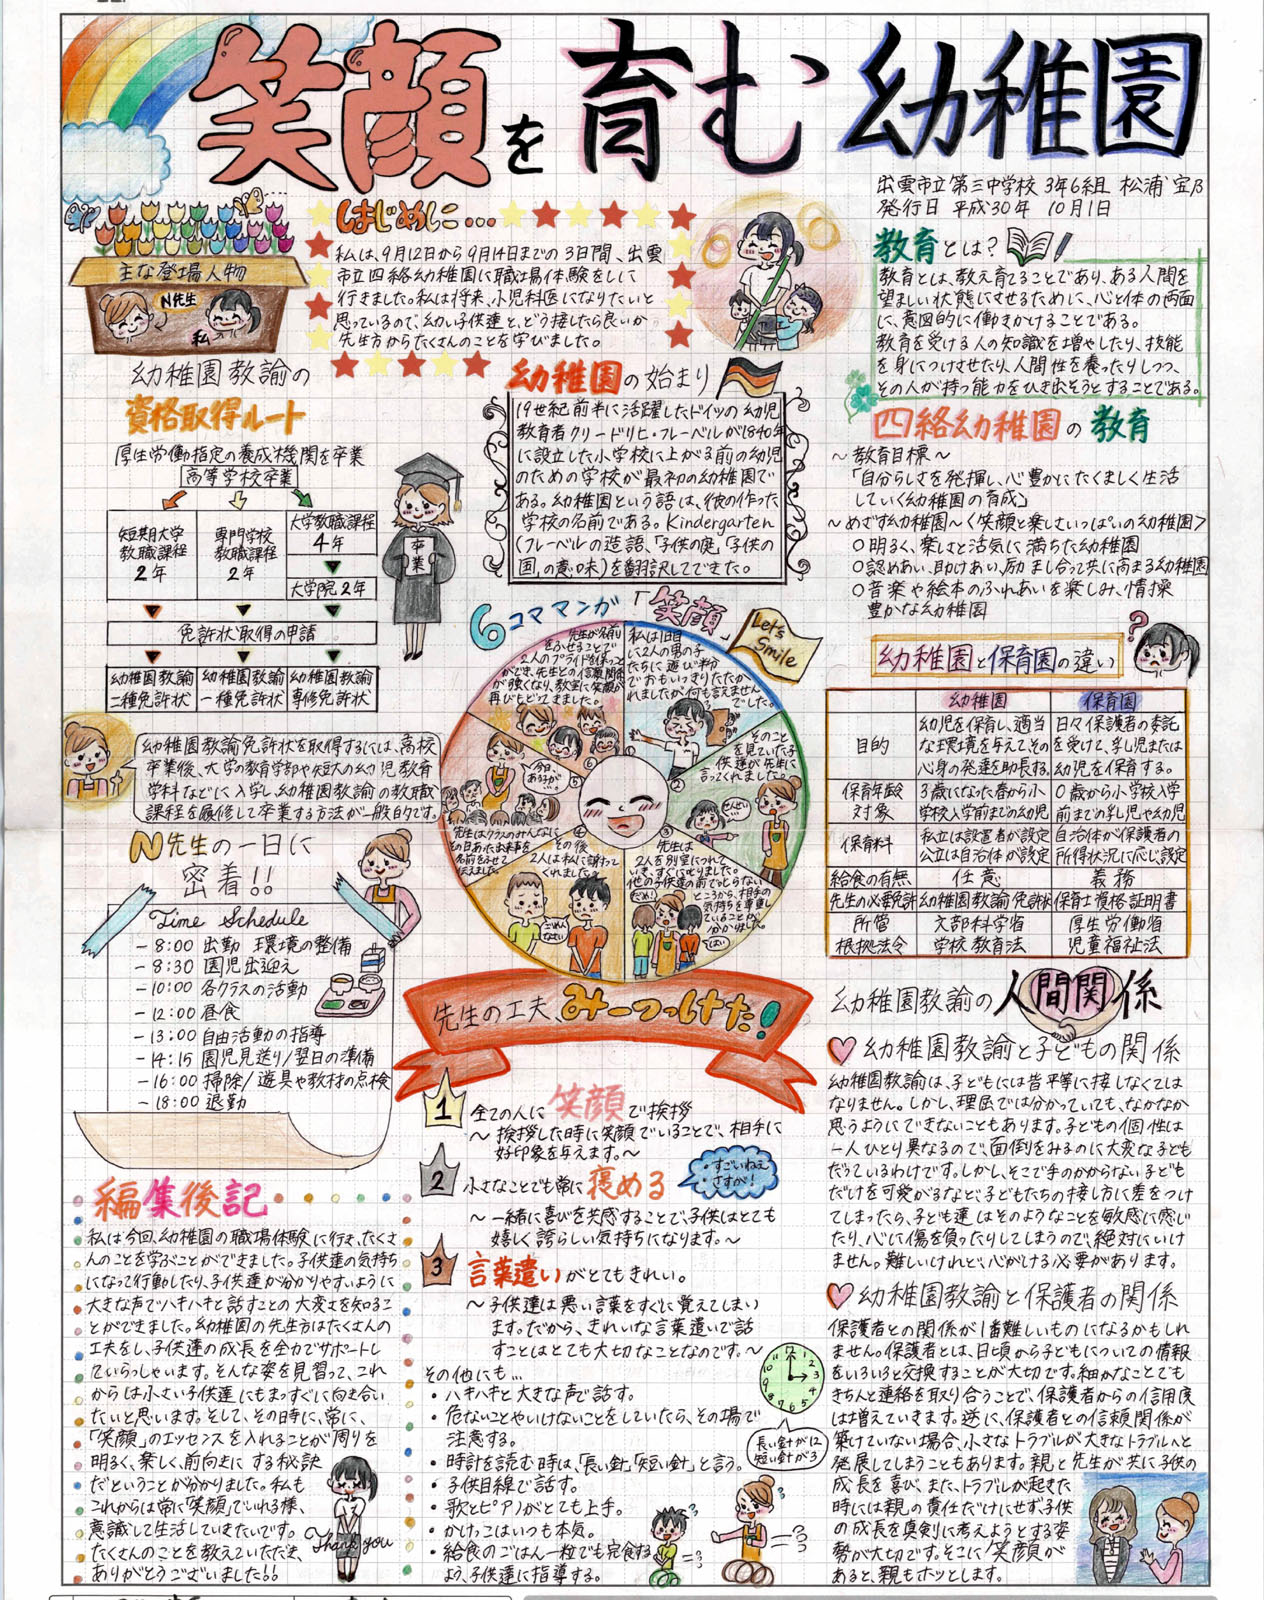 笑顔を育む幼稚園
出雲市立第三中学校 3年6組 松浦 宝乃
発行日 平成30年 10月1日
主な登場人物
N先生
私
はじめに…
私は、9月12日から9月14日までの3日間、出雲
市立四絡幼稚園に職場体験をしに
行きました。私は将来、小児科医になりたいと
思っているので、幼い子供達と、どう接したら良いか
先生方からたくさんのことを学びました。
教育とは?
教育とは、教え育てることであり、ある人間を
望ましい状態にさせるために、心と体の両面
に、意図的に働きかけることである。
教育を受ける人の知識を増やしたり、技能
を身につけさせたり、人間性を養ったりしつつ、
その人が持つ能力をひき出そうとすることである。
幼稚園教諭の
資格取得ルート
厚生労働指定の養成機関を卒業
高等学校卒業
短期大学
教職課程
2年
専門学校
教職課程
2年
大学教職課程
4年
大学院2年
免許状取得の申請
幼稚園教諭
二種免許状
幼稚園教諭
一種免許状
幼稚園教諭
専修免許状
卒業
幼稚園教諭免許状を取得するには、高校
卒業後、大学の教育学部や短大の幼児教育
学科などに入学し幼稚園教諭の教職
課程を履修して卒業する方法が一般的です。
幼稚園の始まり
19世紀前半に活躍したドイツの幼児
教育者フリードリヒ・フレーベルが1840年
に設立した小学校に上がる前の幼児
のための学校が最初の幼稚園で
ある。幼稚園という語は、彼の作った
学校の名前である。Kindergarten
(フレーベルの造語、「子供の庭」「子供の
国」の意味)を翻訳してできた。
四絡幼稚園の教育
～教育目標～
「自分らしさを発揮し、心豊かにたくましく生活
していく幼稚園の育成」
～めざす幼稚園～〈笑顔と楽しさいっぱいの幼稚園〉
○明るく、楽しさと活気に満ちた幼稚園
○認めあい、助けあい、励まし合って共に高まる幼稚園
○音楽や絵本のふれあいを楽しみ、情操
豊かな幼稚園
6コママンガ「笑顔」
Let's
Smile
私は1日目
に2人の男の子
たちに遊び半分
でおもいっきりたたか
れましたが何も言えません
でした。
①
そのこと
を見ていた子
供達が先生に
言ってくれました。
②
せんせい
先生は
2人を別室につれて
いき、すぐに叱りました。
他の子供達の前で叱らない
ところから、相手の
気持ちを尊重し
ていることが
分かりました。
③
だめ!
はい
その後
2人は私に謝って
くれました。
④
ごめん
なさい
先生はクラスのみんなに
その日あった出来事を
名前をふせて
伝えました。
⑤
今日、
あるが…
先生が名前
をふせることで
2人のプライドを保つこと
ができ、先生との信頼関係
が強くなり、教室に笑顔が
再びもどってきました。
⑥
幼稚園と保育園の違い
幼稚園 保育園
目的 幼児を保育し、適当な環境を与えてその心身の発達を助長する。 日々保護者の委託を受けて、乳児または幼児を保育する。
保育年齢対象 3歳になった春から小学校入学前までの幼児 0歳から小学校入学前までの乳児や幼児
保育料 私立は設置者が設定 公立は自治体が設定 自治体が保護者の所得状況に応じ設定
給食の有無 任意 義務
先生の必要免許 幼稚園教諭免許状 保育士資格証明書
所管 文部科学省 厚生労働省
根拠法令 学校教育法 児童福祉法
N先生の一日に
密着!!
Time Schedule
－8:00 出勤 環境の整備
－8:30 園児出迎え
－10:00 各クラスの活動
－12:00 昼食
－13:00 自由活動の指導
－14:15 園児見送り/翌日の準備
－16:00 掃除/遊具や教材の点検
－18:00 退勤
先生の工夫、みーつっけた!
1 全ての人に笑顔で挨拶
～挨拶した時に笑顔でいることで、相手に
好印象を与えます。～
2 小さなことでも常に褒める
・すごいねぇ
・さすが!
～一緒に喜びを共感することで、子供はとても
嬉しく誇らしい気持ちになります。～
3 言葉遣いがとてもきれい。
～子供達は悪い言葉をすぐに覚えてしまい
ます。だから、きれいな言葉遣いで話
すことはとても大切なことなのです。～
その他にも…
・ハキハキと大きな声で話す。
・危ないことやいけないことをしていたら、その場で
注意する。
・時計を読む時は、「長い針」「短い針」と言う。
・子供目線で話す。
・歌とピアノがとても上手。
・かけっこはいつも本気。
・給食のごはん一粒でも完食する
よう、子供達に指導する。
長い針が12
短い針が3
幼稚園教諭の人間関係
幼稚園教諭と子どもの関係
幼稚園教諭は、子どもには皆平等に接しなくては
なりません。しかし、理屈では分かっていても、なかなか
思うようにできないこともあります。子どもの個性は
一人ひとり異なるので、面倒をみるのに大変な子ども
だっているわけです。しかし、そこで手のかからない子ども
だけを可愛がるなど、子どもたちの接し方に差をつけ
てしまったら、子ども達はそのようなことを敏感に感じ
たり、心に傷を負ったりしてしまうので、絶対にいけ
ません。難しいけれど、心がける必要があります。
幼稚園教諭と保護者の関係
保護者との関係が1番難しいものになるかもしれ
ません。保護者とは、日頃から子どもについての情報
をいろいろと交換することが大切です。細かなことでも
きちんと連絡を取り合うことで、保護者からの信用度
は増えていきます。逆に、保護者との信頼関係が
築けていない場合、小さなトラブルが大きなトラブルへと
発展してしまうこともあります。親と先生が共に子供の
成長を喜び、また、トラブルが起きた
時には親の責任だけにせず子供
の成長を真剣に考えようとする姿
勢が大切です。そこに笑顔が
あると、親もホッとします。
編集後記
私は今回、幼稚園の職場体験に行き、たくさ
んのことを学ぶことができました。子供達の気持ち
になって行動したり、子供達が分かりやすいように
大きな声でハキハキと話すことの大変さを知るこ
とができました。幼稚園の先生方はたくさんの
工夫をし、子供達の成長を全力でサポートし
ていらっしゃいます。そんな姿を見習って、これ
からは小さい子供達にもまっすぐに向き合い
たいと思います。そして、その時に、常に、
「笑顔」のエッセンスを入れることが周りを
明るく、楽しく、前向きにする秘訣
だということが分かりました。私も
これからは常に「笑顔」でいれる様、
意識して生活していきたいです。
たくさんのことを教えていただき、
ありがとうございました!!
Thank you